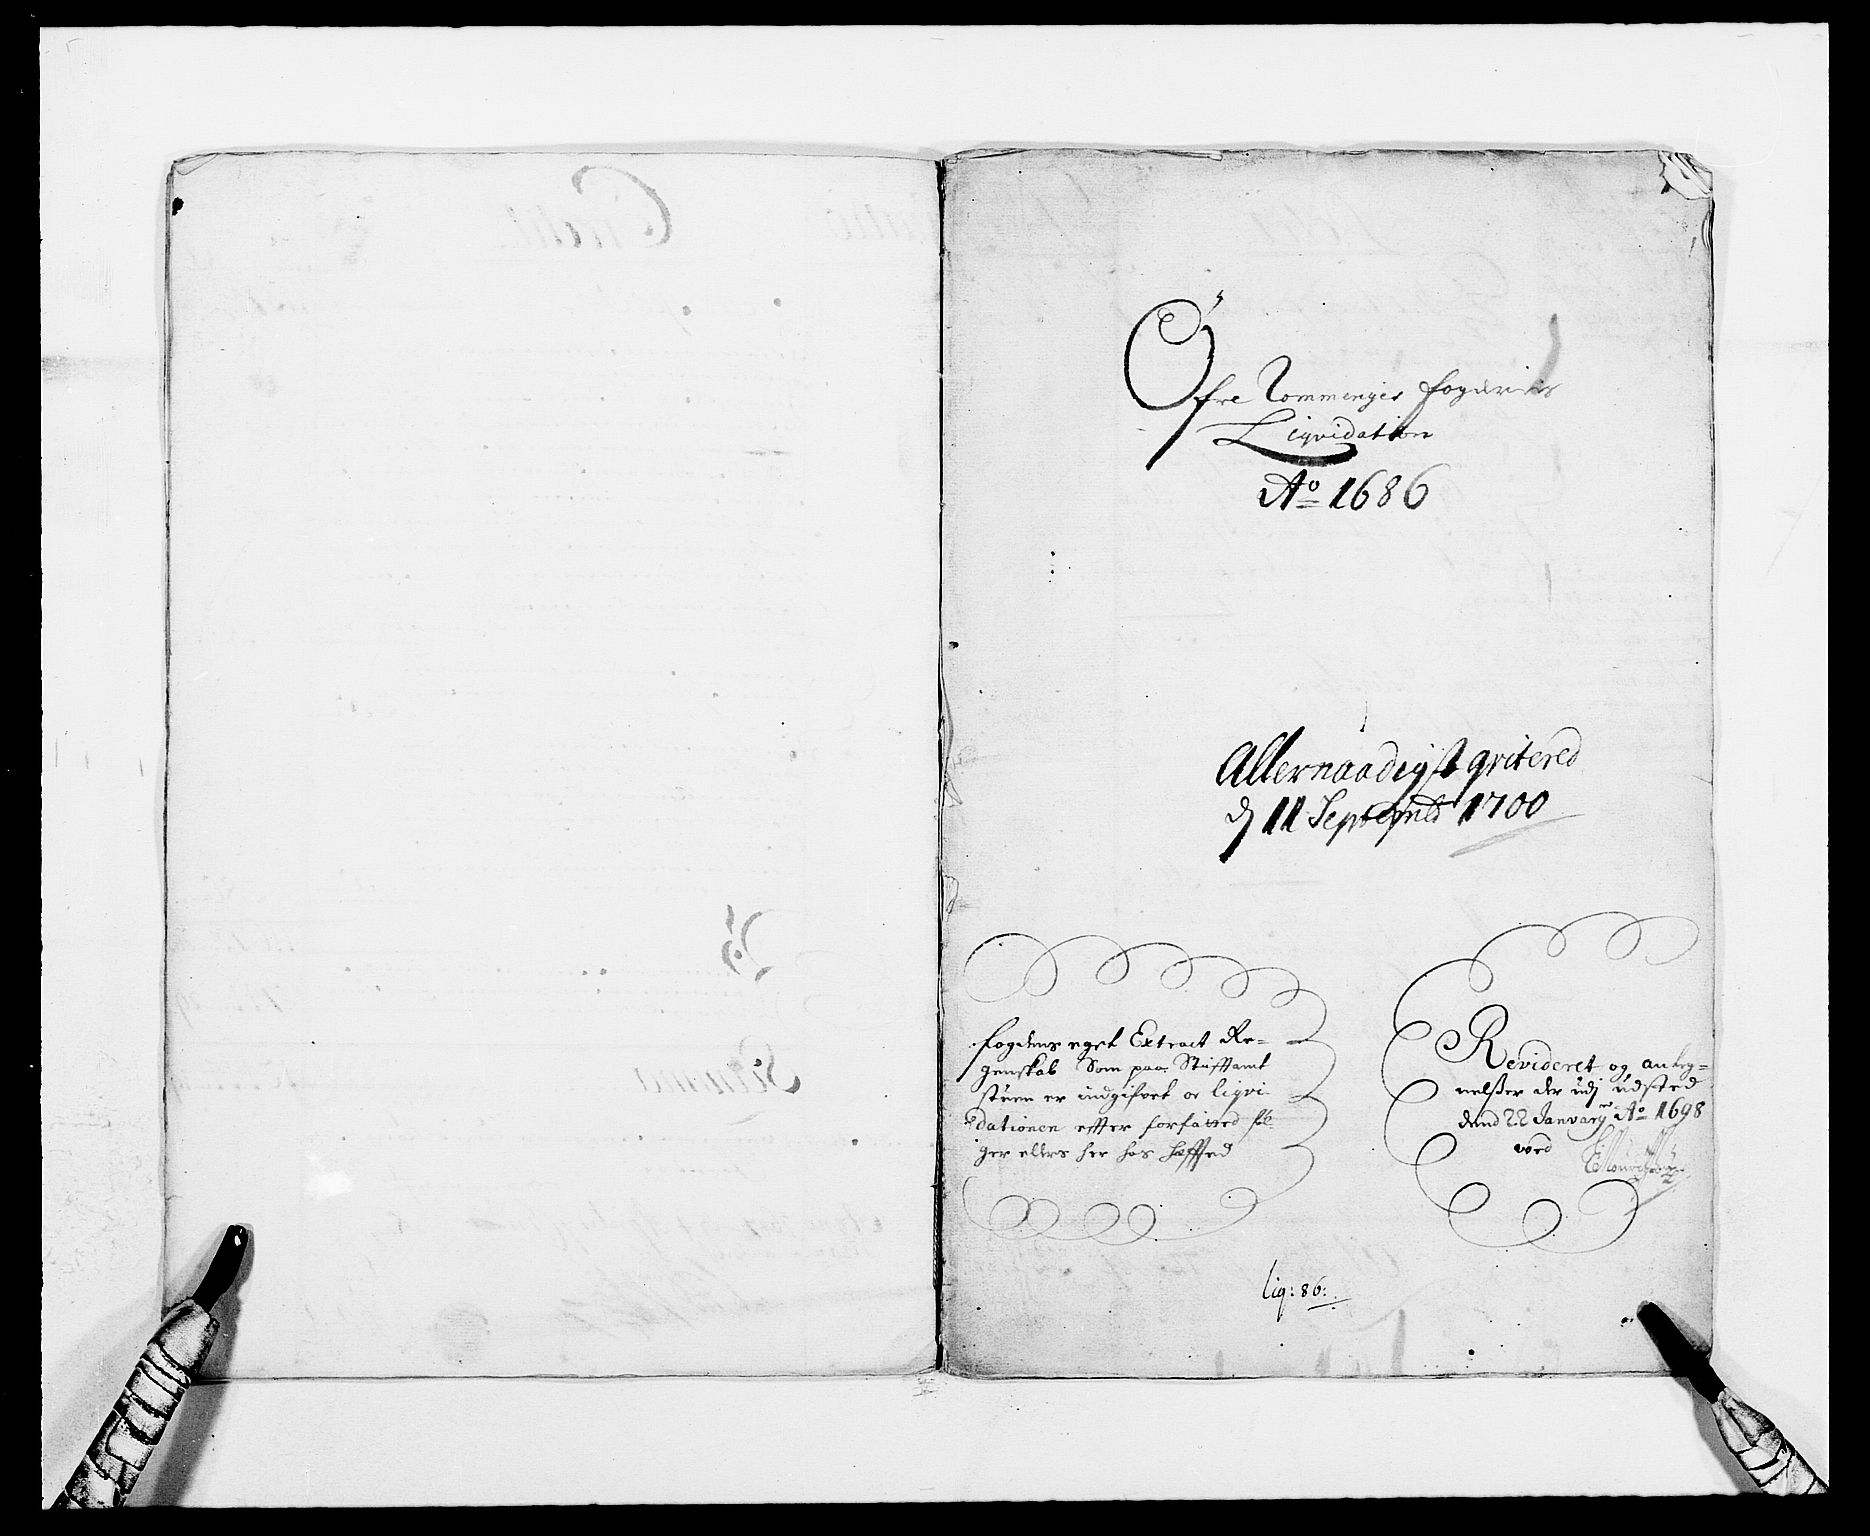 Öfre Rommeriges fogderies
Liqvidation
Ao 1686
Allernaadigst qvitered
d 11 Septemb 1700
fogdens eget Extract Re-
genskab Som paa Stifftamt
stuen er indgifvet oc liqvi-
dationen effter forfatted föl-
ger ellers her hos hefftted
Revideret og anteg-
nelsser der udj udsted
dend 22 Januarij Ao 1698
ved
Liq: 86: